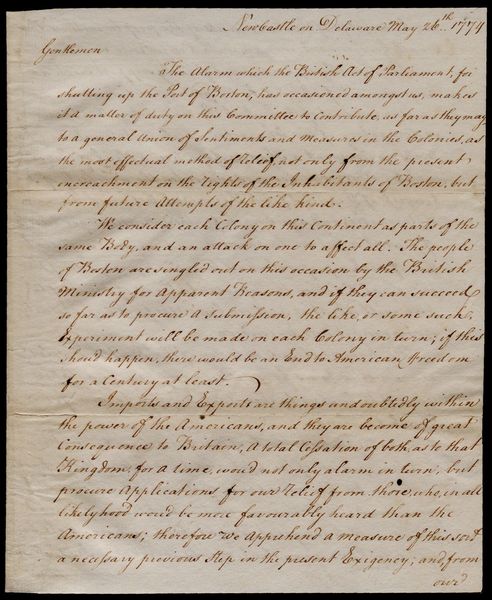 Newcastle on Delaware May 26th. 1774
Gentlemen
The Alarm which the British Act of Parliament, for
shutting up the Port of Boston, has occasioned amongst us, makes
it a matter of duty on this Committee to contribute, as far as they may
to a general Union of Sentiments and Measures in the Colonies, as
the most effectual method of Relief, not only from the present
encroachment on the Rights of the Inhabitants of Boston, but
from future Attempts of the like kind.
We consider each Colony on this Continent as parts of the
same Body, and an attack on one to affect all. The people
of Boston are singled out on this occasion by the British
Ministry for apparent Reasons, and if they can succeed
so far as to procure a submission, the like, or some such,
Experiment will be made on each Colony in turn; if this
shoud happen, there would be an End to American Freedom
for a Century at least.
Imports and Exports are things undoubtedly within
the power of the Americans, and they are become of great
Consequence to Britain, A total Cessation of both, as to that
Kingdom, for a time, woud not only alarm in turn, but
procure Applications for our Relief from those, who, in all
likelyhood would be more favourably heard than the
Americans; therefore we apprehend a measure of this sort
a necessary previous step in the present Exigency; and, from
our